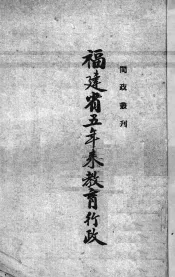 閩政叢刊
福建省五年來教育行政